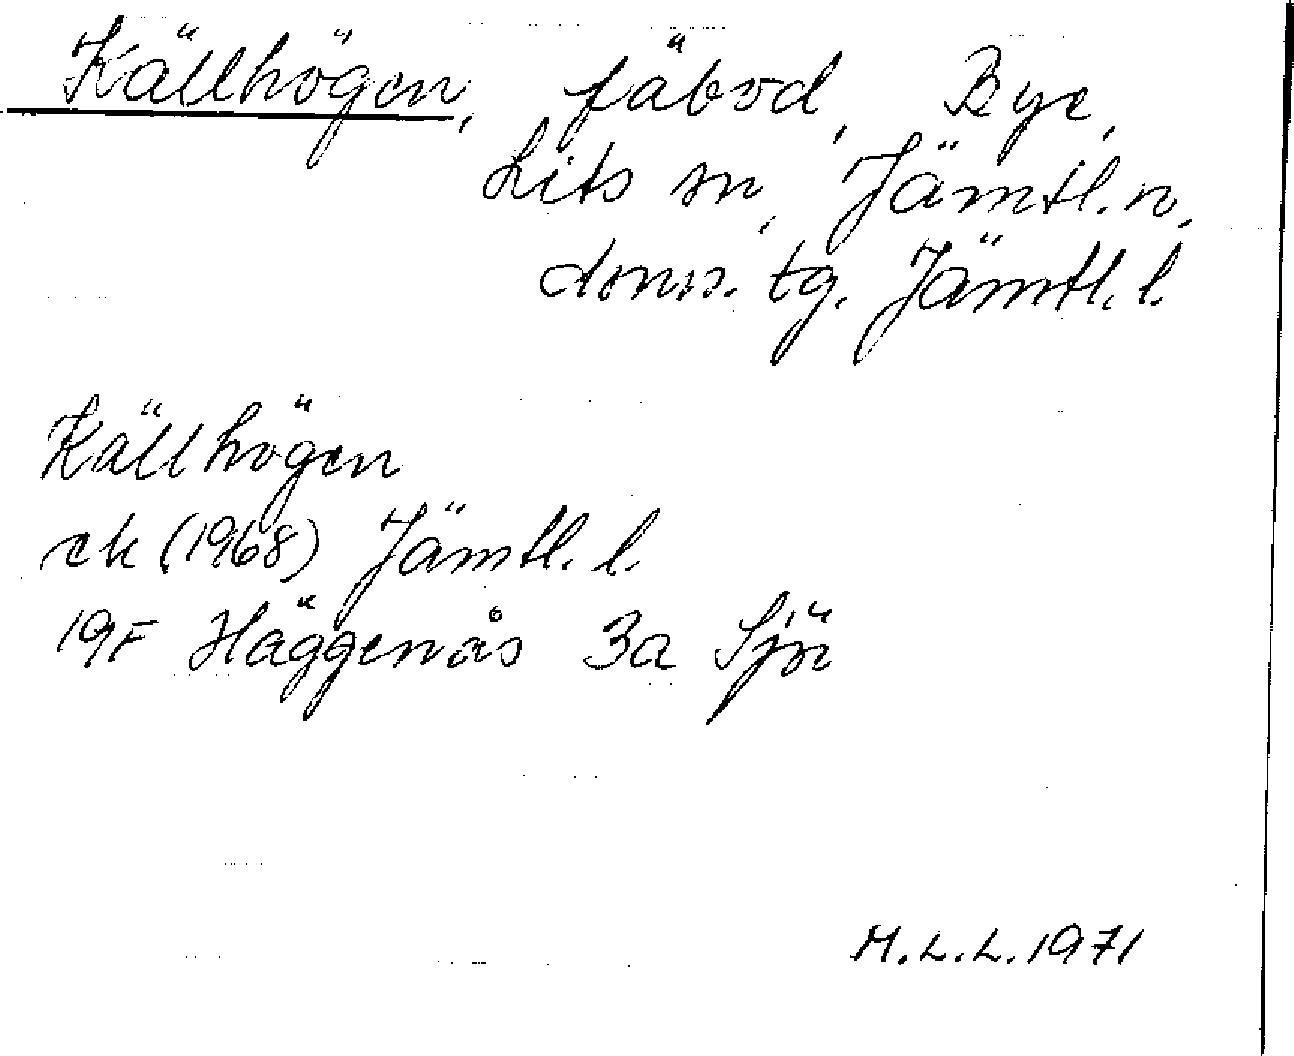 Källhögen, fäbod, Bye,
Lits sn, Jämtl. n.
doms. tg. Jämtl. l.
Källhögen
ek (1968) Jämtl. l.
19F Häggenås 3a Sjö
M.L.L. 1971